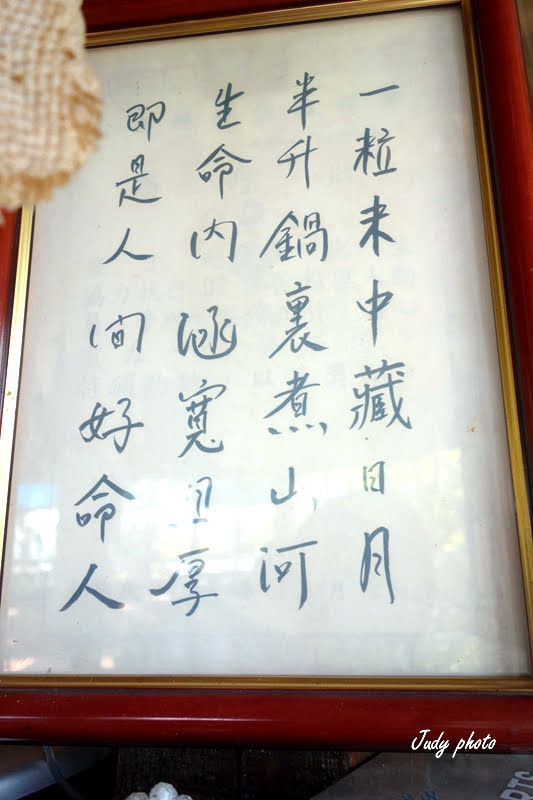 一粒米中藏日月
半升鍋裏煮山河
生命內涵寬且厚
即是人间好命人
Judy photo